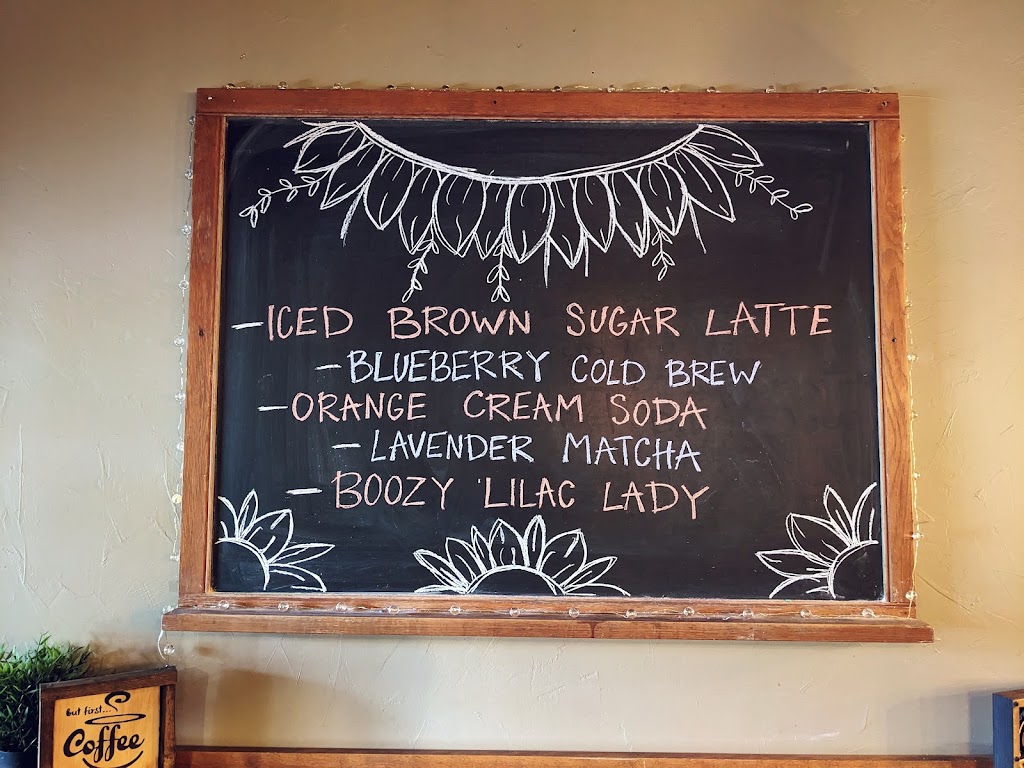 –ICED BROWN SUGAR LATTE
–BLUEBERRY COLD BREW
–ORANGE CREAM SODA
–LAVENDER MATCHA
–BOOZY LILAC LADY
but first...
Coffee